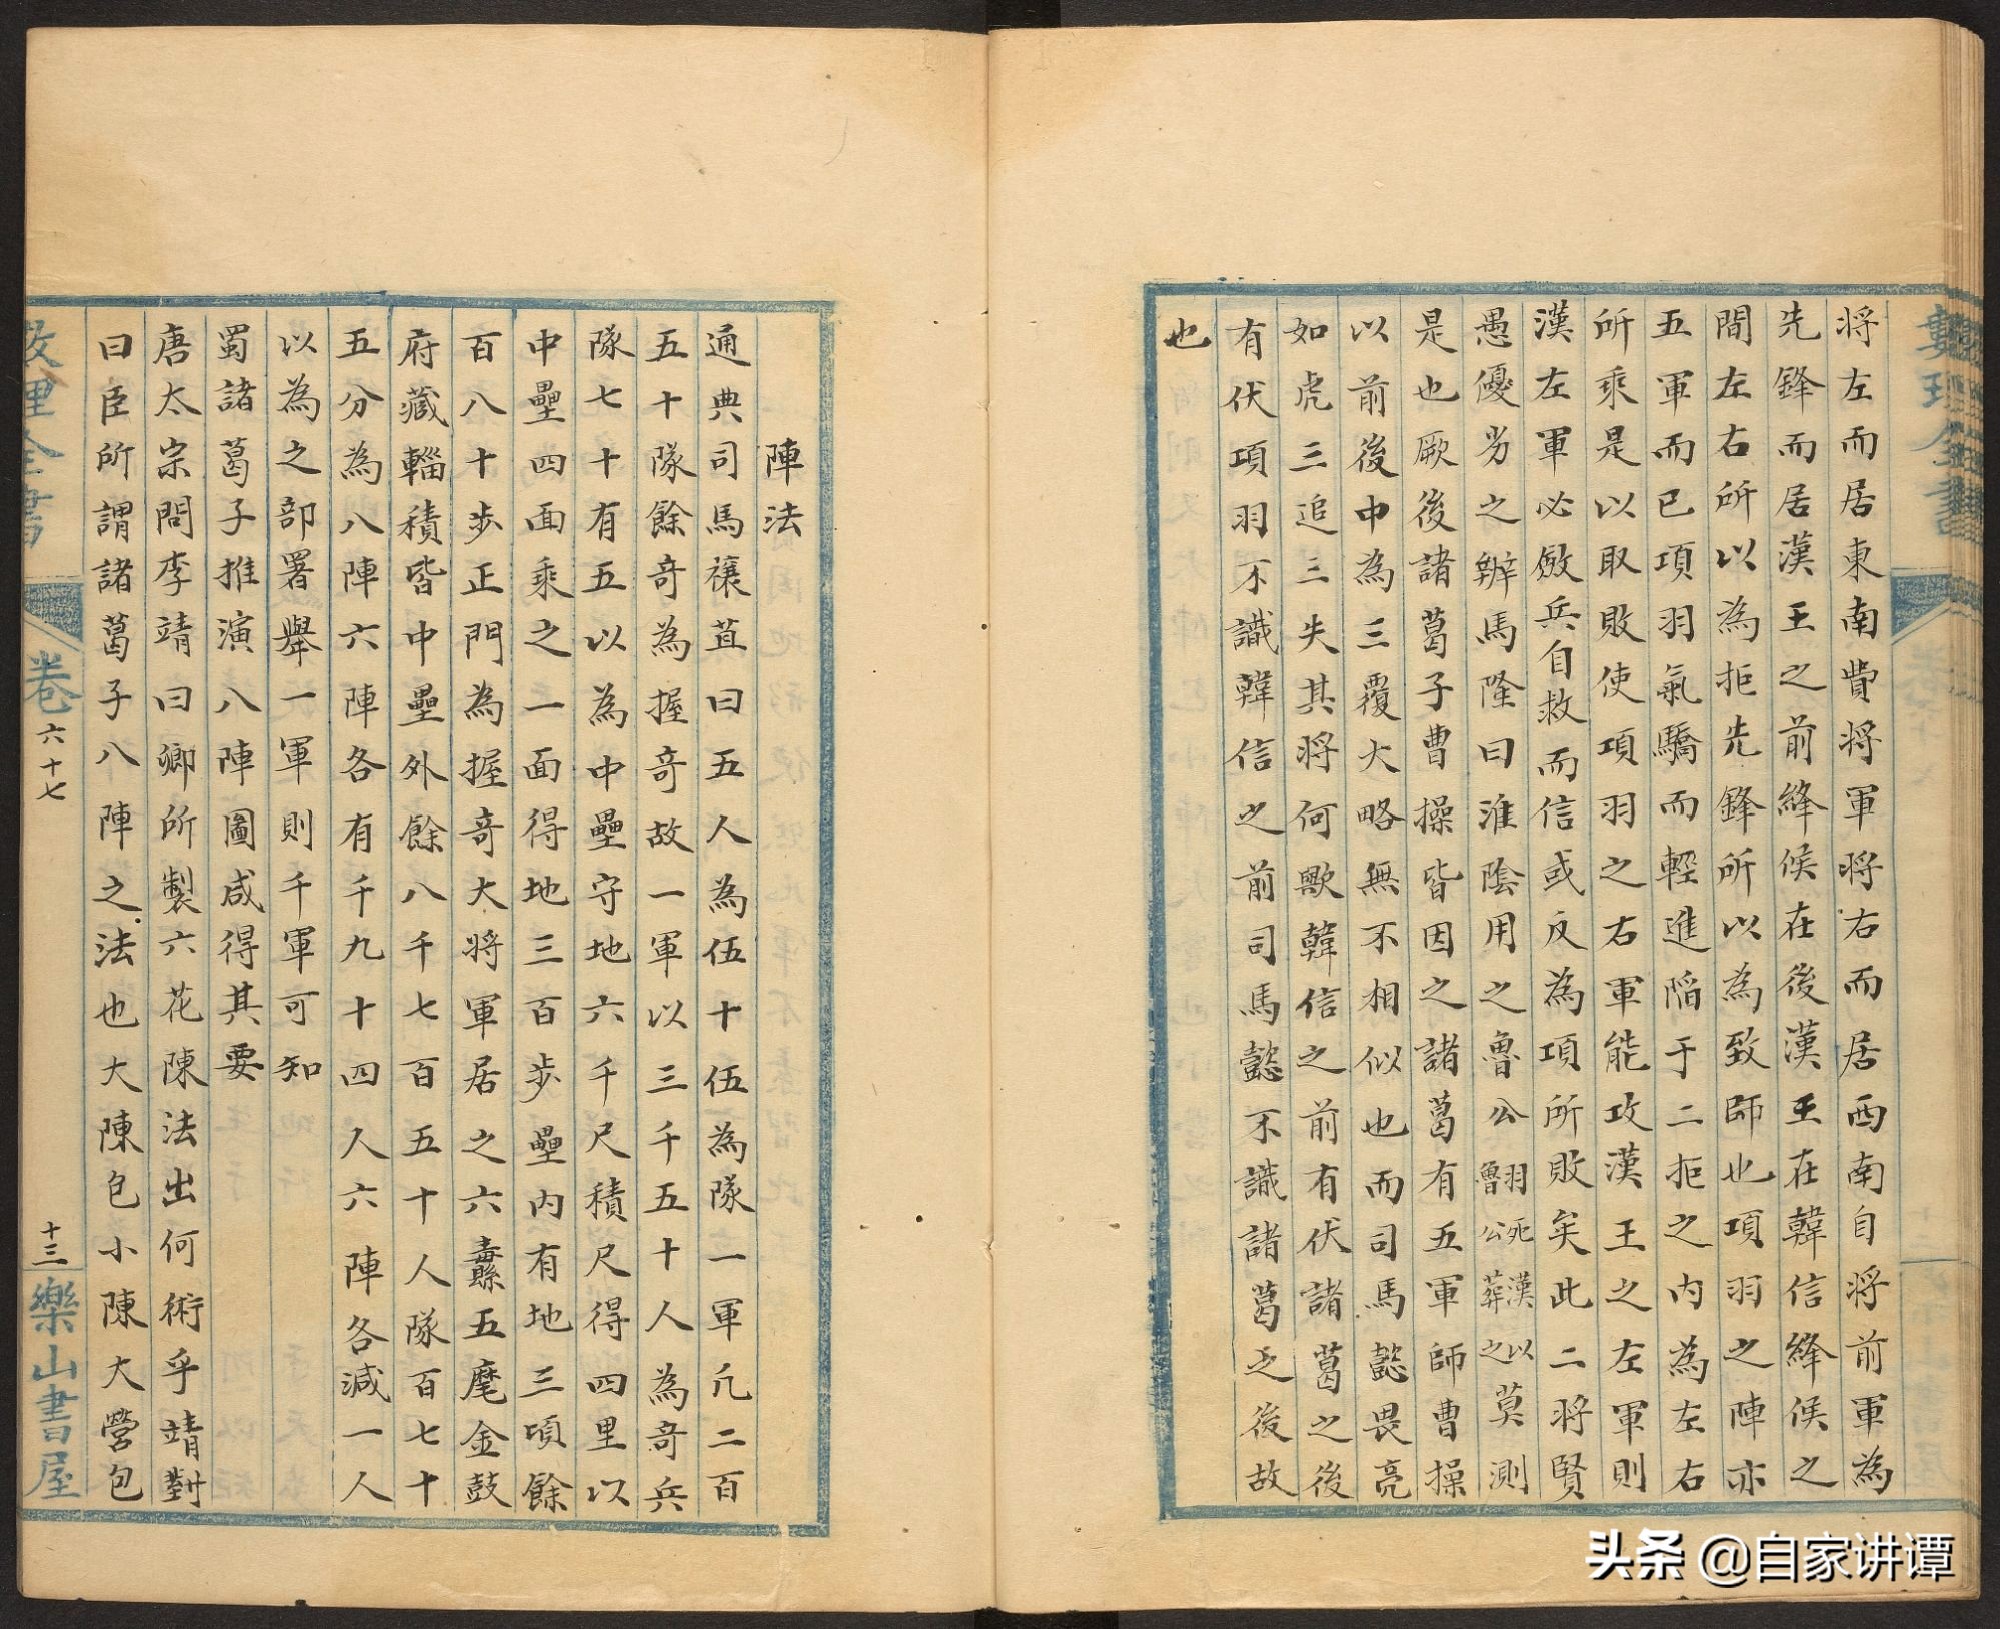 將左而居東南費將軍將右而居西南自將前軍為
先鋒而居漢王之前絳侯在後漢王在韓信絳侯之
間左右所以為拒先鋒所以為致師也項羽之陣亦
五軍而已項羽氣驕而輕進陷于二拒之内為左右
所乘是以取敗使項羽之右軍能攻漢王之左軍則
漢左軍必斂兵自救而信或反為項所敗矣此二將賢
愚優劣之辨馬隆曰淮陰用之魯公羽死漢以魯公葬之莫測
是也厥後諸葛子曹操皆因之諸葛有五軍師曹操
以前後中為三覆大略無不相似也而司馬懿畏亮
如虎三追三失其將何歟韓信之前有伏諸葛之後
有伏項羽不識韓信之前司馬懿不識諸葛之後故
也
陣法
通典司馬穰苴曰五人為伍十伍為隊一軍凢二百
五十隊餘竒為握竒故一軍以三千五十人為竒兵
隊七十有五以為中壘守地六千尺積尺得四里以
中壘四面乘之一面得地三百步壘内有地三項餘
百八十步正門為握竒大將軍居之六纛五麾金鼓
府藏輜積皆中壘外餘八千七百五十人隊百七十
五分為八陣六陣各有千九十四人六陣各減一人
以為之部署舉一軍則千軍可知
蜀諸葛子推演八陣圖咸得其要
唐太宗問李靖曰卿所製六花陳法出何術乎靖對
曰臣所謂諸葛子八陣之法也大陳包小陳大營包
數理全書
卷六十七
十三
樂山書屋
头条 @自家讲谭